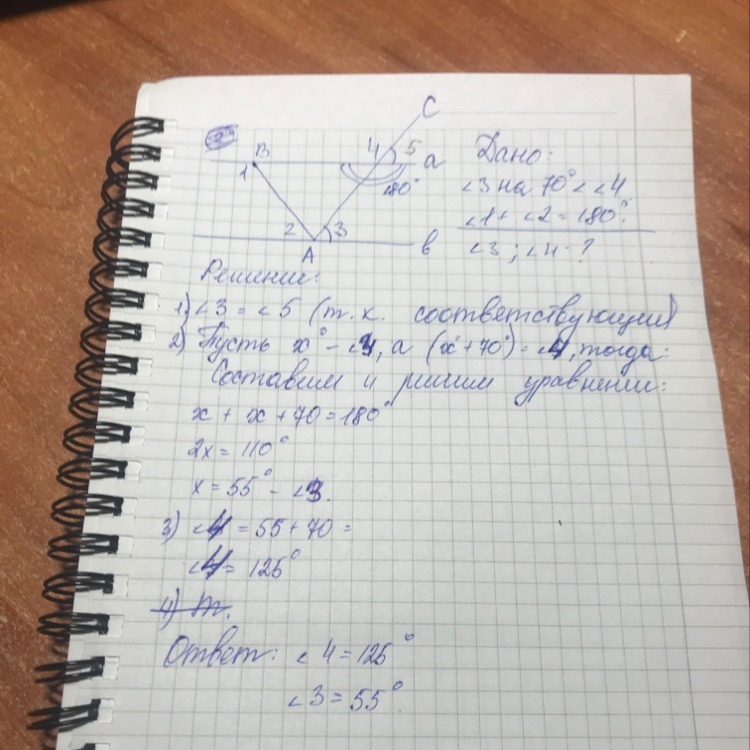 2
C
B
4 5 a
1
180°
2 3
A
в
Дано:
∠3 на 70° < ∠4
∠1 + ∠2 = 180°.
∠3; ∠4 - ?
Решение:
1) ∠3 = ∠5 (т.к. соответствующии)
2) Пусть x° - ∠3, а (x + 70°) = ∠4, тогда:
Составим и решим уравнении:
x + x + 70 = 180°
2x = 110°
x = 55° - ∠3.
3) ∠4 = 55 + 70 =
∠4 = 125°
4) т.
Ответ: ∠4 = 125°
∠3 = 55°.